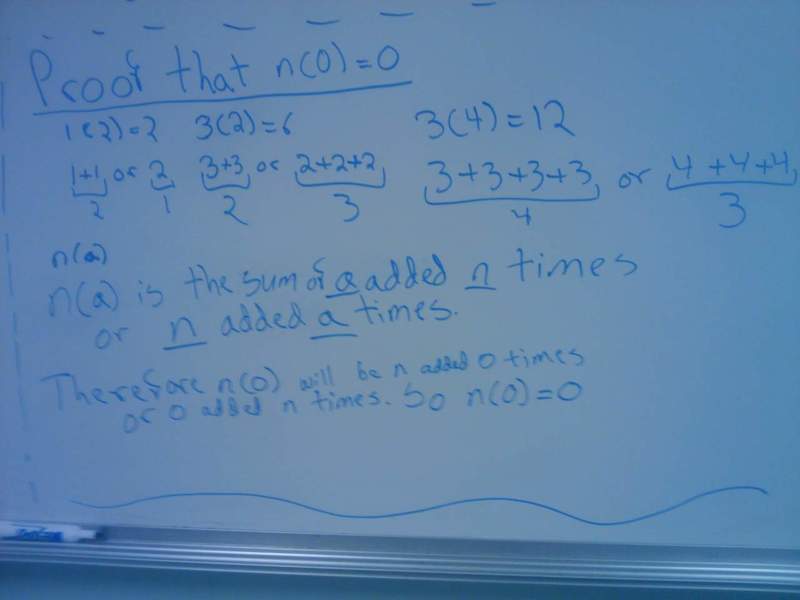 Proof that n(0)=0
1(2)=2 3(2)=6 3(4)=12
1+1 or 2 3+3 or 2+2+2 3+3+3+3 or 4+4+4
2 1 2 3 4 3
n(a)
n(a) is the sum of a added n times
or n added a times.
Therefore n(0) will be n added 0 times
or 0 added n times. So n(0)=0